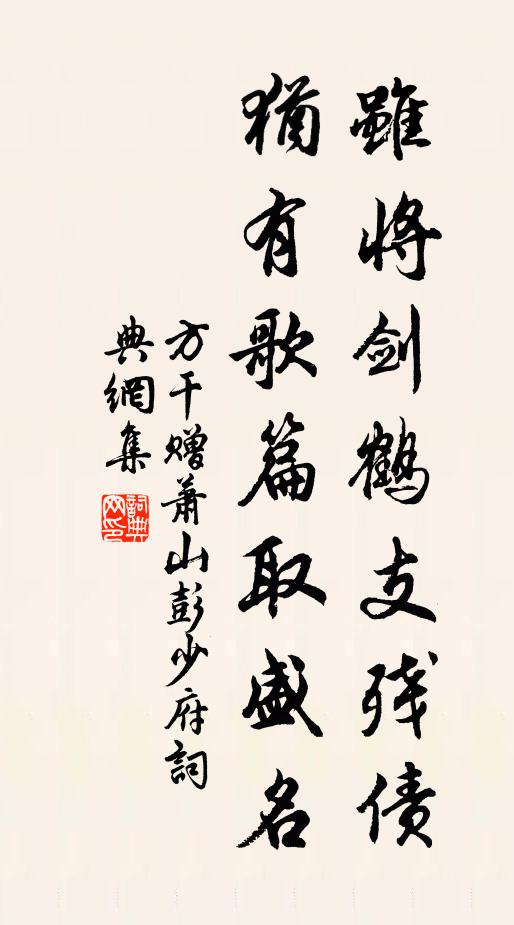 雖將劍鶴支殘債
猶有歌篇取盛名
方干贈蕭山彭少府詞
典網集
詞典網印